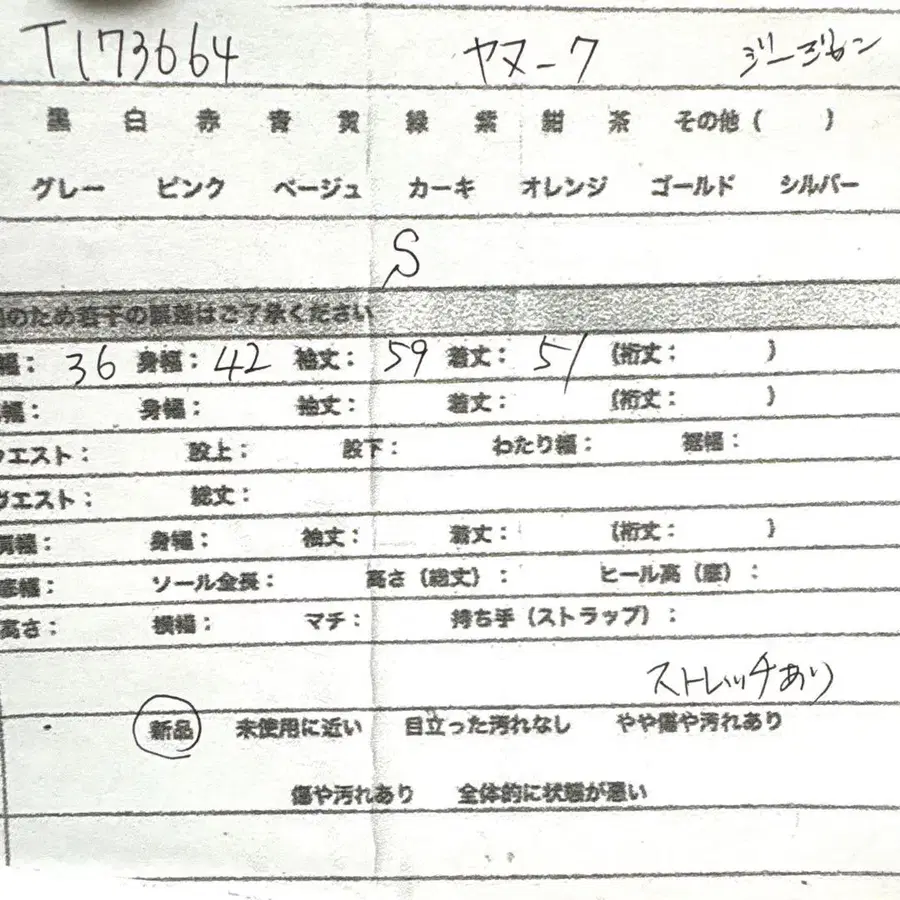 T173664 ヤヌーク ジージャン
黒 白 赤 青 黄 緑 紫 紺 茶 その他 ( )
グレー ピンク ベージュ カーキ オレンジ ゴールド シルバー
S
のため若干の誤差はご了承ください
幅: 36 身幅: 42 袖丈: 59 着丈: 51 (裄丈: )
幅: 身幅: 袖丈: 着丈: (裄丈: )
ウエスト: 股上: 股下: わたり幅: 裾幅:
ウエスト: 総丈:
肩幅: 身幅: 袖丈: 着丈: (裄丈: )
底幅: ソール全長: 高さ (総丈) : ヒール高 (底) :
高さ: 横幅: マチ: 持ち手 (ストラップ) :
ストレッチあり
新品 未使用に近い 目立った汚れなし やや傷や汚れあり
傷や汚れあり 全体的に状態が悪い